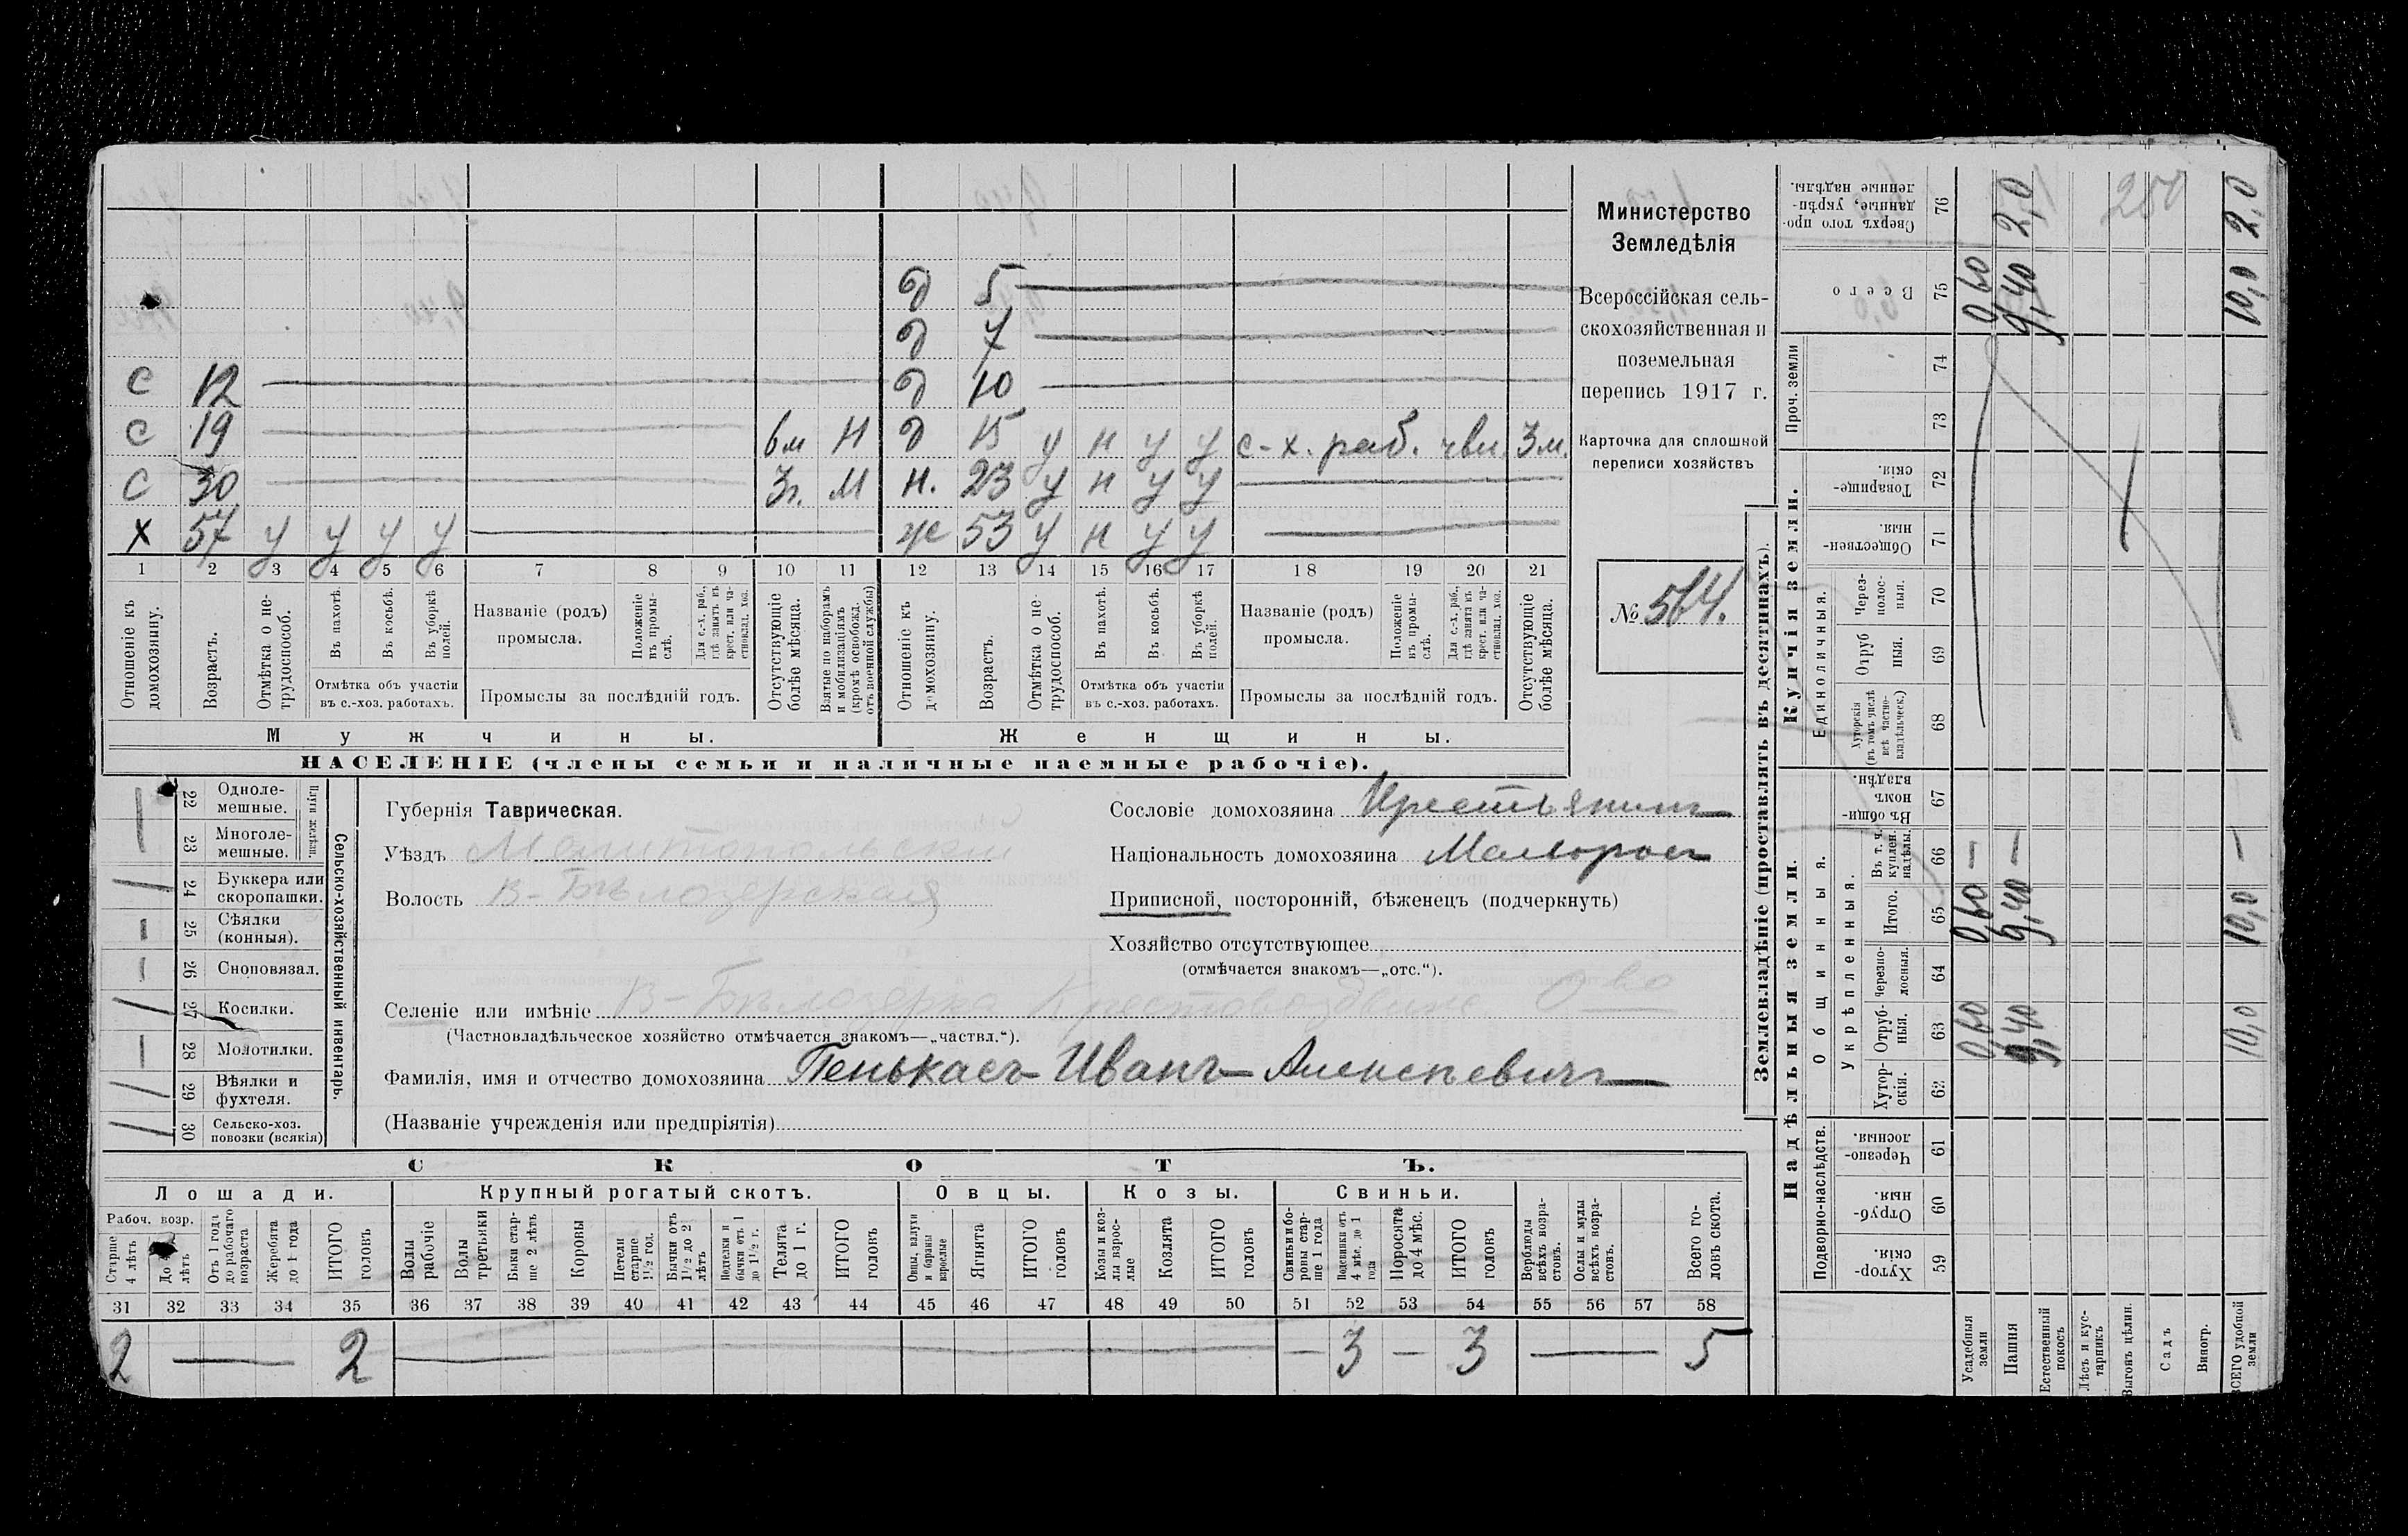 Министерство
Земледѣлія
Всероссійская сель-
скохозяйственная и
поземельная
перепись 1917 г.
Карточка для сплошной
переписи хозяйствъ
№ 564.
д 5
д 7
С 12 д 10
С 19 6м Н д 15 у н у у с-х. раб. 3м.
С 30 3г. М н. 23 у н у у
Х 57 у у у у ж 53 у н у у
1 2 3 4 5 6 7 8 9 10 11 12 13 14 15 16 17 18 19 20 21
Отношеніе къ домохозяину.
Возрастъ.
Отмѣтка о не-трудоспособ.
Въ пахотѣ.
Въ косьбѣ.
Въ уборкѣ полей.
Отмѣтка объ участіи
въ с.-хоз. работахъ.
Названіе (родъ)
промысла.
Положеніе въ промы-слѣ.
Для с.-х. раб., гдѣ занятъ въ крест. или ча-стновлад. хоз.
Промыслы за послѣдній годъ.
Отсутствующіе болѣе мѣсяца.
Взятые по наборамъ и мобилизаціямъ (кромѣ освобожд. отъ военной службы)
Отношеніе къ домохозяину.
Возрастъ.
Отмѣтка о не-трудоспособ.
Въ пахотѣ.
Въ косьбѣ.
Въ уборкѣ полей.
Отмѣтка объ участіи
въ с.-хоз. работахъ.
Названіе (родъ)
промысла.
Положеніе въ промы-слѣ.
Для с.-х. раб., гдѣ занята въ крест. или ча-стновлад. хоз.
Промыслы за послѣдній годъ.
Отсутствующіе болѣе мѣсяца.
Мужчины. Женщины.
НАСЕЛЕНІЕ (члены семьи и наличные наемные рабочіе).
22 Одноле-мешные.
23 Многоле-мешные.
Плуги желѣзн.
24 Буккера или скоропашки.
25 Сѣялки (конныя).
26 Сноповязал.
27 Косилки.
28 Молотилки.
29 Вѣялки и фухтеля.
30 Сельско-хоз. повозки (всякія)
Сельско-хозяйственный инвентарь.
Губернія Таврическая.
Уѣздъ Мелитопольскій
Волость В-Бѣлозерская
Селеніе или имѣніе В-Бѣлозерка Крестовоздвиж. О-во
(Частновладѣльческое хозяйство отмѣчается знакомъ—„частвл.“).
Фамилія, имя и отчество домохозяина Пенькасъ Иванъ Алексѣевичъ
(Названіе учрежденія или предпріятія)
Сословіе домохозяина Крестьянинъ
Національность домохозяина Малоросъ
Приписной, посторонній, бѣженецъ (подчеркнуть)
Хозяйство отсутствующее
(отмѣчается знакомъ—„отс.“).
СКОТЪ.
Лошади. Крупный рогатый скотъ. Овцы. Козы. Свиньи.
Рабоч. возр.
Старше 4 лѣтъ
До 4 лѣтъ
Отъ 1 года до рабочаго возраста
Жеребята до 1 года
ИТОГО головъ
Волы рабочіе
Волы третьяки
Быки стар-ше 2 лѣтъ
Коровы
Нетели старше 1½ год.
Бычки отъ 1½ до 2 лѣтъ
Подтелки и бычки отъ 1 до 1½ г.
Телята до 1 г.
ИТОГО головъ
Овцы, валухи и бараны взрослые
Ягнята
ИТОГО головъ
Козы и коз-лы взрос-лые
Козлята
ИТОГО головъ
Свиньи и бо-ровы стар-ше 1 года
Подсвинки отъ 4 мѣс. до 1 года
Поросята до 4 мѣс.
ИТОГО головъ
Верблюды всѣхъ возра-стовъ.
Ослы и мулы всѣхъ возра-стовъ.
Всего го-ловъ скота.
31 32 33 34 35 36 37 38 39 40 41 42 43 44 45 46 47 48 49 50 51 52 53 54 55 56 57 58
2 — 2 — — 3 — 3 — 5
Землевладѣніе (проставлять въ десятинахъ).
Надѣльныя земли.
Купчія земли.
Подворно-наслѣдств.
Общинныя.
Укрѣпленныя.
Единоличныя.
Проч. земли
59 Хутор-скія.
60 Отруб-ныя.
61 Черезпо-лосныя.
62 Хутор-скія.
63 Отруб-ныя. 0,60 9,40 10,0
64 Черезпо-лосныя.
65 Итого. 0,60 9,40 10,0
66 Въ т. ч. куплен. надѣлы. — — —
67 Въ общин-номъ владѣн.
68 Хуторскія (въ томъ числѣ всѣ частно-владѣльческ.)
69 Отруб ныя.
70 Через-полос-ныя.
71 Обществен-ныя.
72 Товарище-скія.
73
74
75 Всего 0,60 9,40 10,0
76 Сверхъ того про-данные, укрѣп-ленные надѣлы. 2,0 250 2,0
Усадебныя земли
Пашня
Естественный покосъ
Лѣсъ и кус-тарникъ
Выгонъ цѣлин.
Садъ
Виногр.
ВСЕГО удобной земли